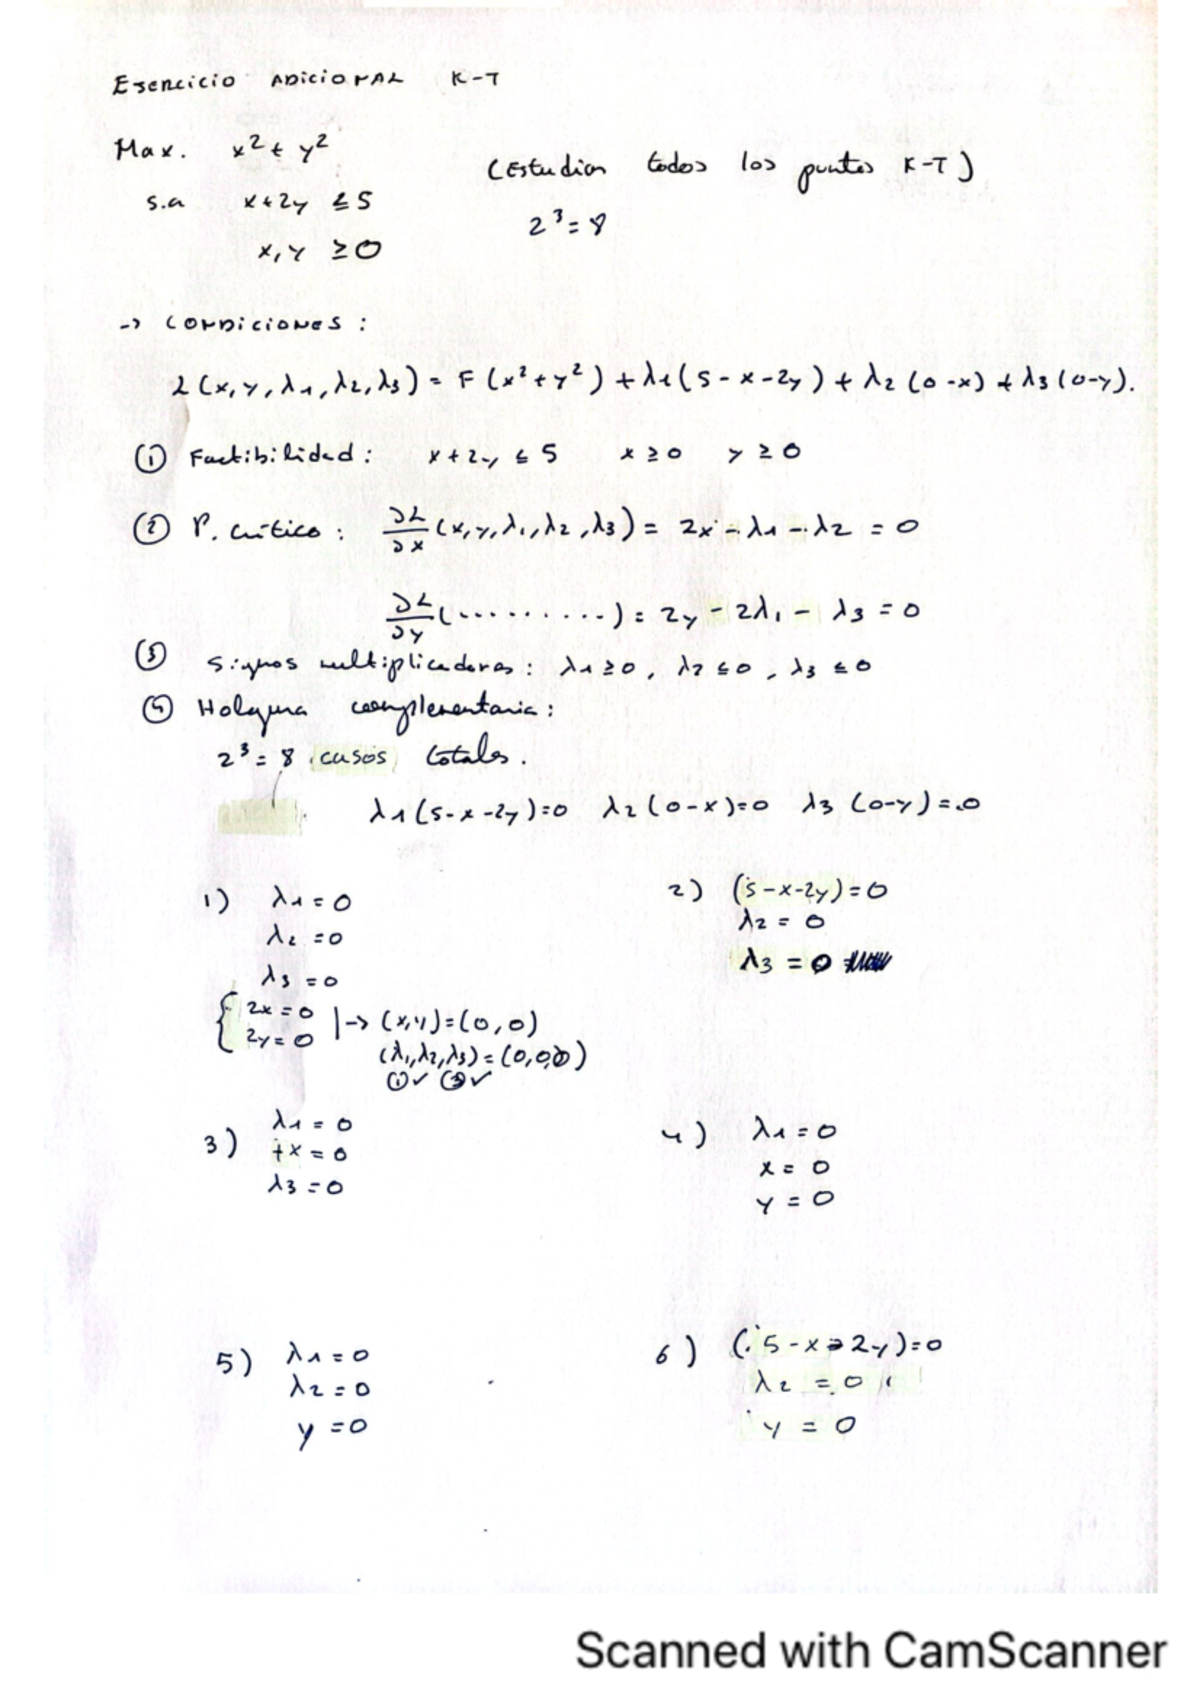 Ejercicio ADICIONAL K-T
Max. x² + y² (Estudiar todos los puntos K-T)
s.a x + 2y ≤ 5 2³ = 8
x, y ≥ 0
-> CONDICIONES :
L (x, y, λ1, λ2, λ3) = F (x² + y²) + λ1 (5 - x - 2y) + λ2 (0 - x) + λ3 (0 - y).
① Factibilidad : x + 2y ≤ 5 x ≥ 0 y ≥ 0
② P. Crítico : ∂L/∂x (x, y, λ1, λ2, λ3) = 2x - λ1 - λ2 = 0
∂L/∂y (..........) = 2y - 2λ1 - λ3 = 0
③ Signos multiplicadores : λ1 ≥ 0, λ2 ≤ 0, λ3 ≤ 0
④ Holgura complementaria :
2³ = 8 casos totales.
λ1 (5 - x - 2y) = 0 λ2 (0 - x) = 0 λ3 (0 - y) = 0
1) λ1 = 0
λ2 = 0
λ3 = 0
{ 2x = 0
2y = 0 | -> (x, y) = (0, 0)
(λ1, λ2, λ3) = (0, 0, 0)
① ✓ ③ ✓
2) (5 - x - 2y) = 0
λ2 = 0
λ3 = 0
3) λ1 = 0
+x = 0
λ3 = 0
4) λ1 = 0
x = 0
y = 0
5) λ1 = 0
λ2 = 0
y = 0
6) (5 - x - 2y) = 0
λ2 = 0
y = 0
Scanned with CamScanner